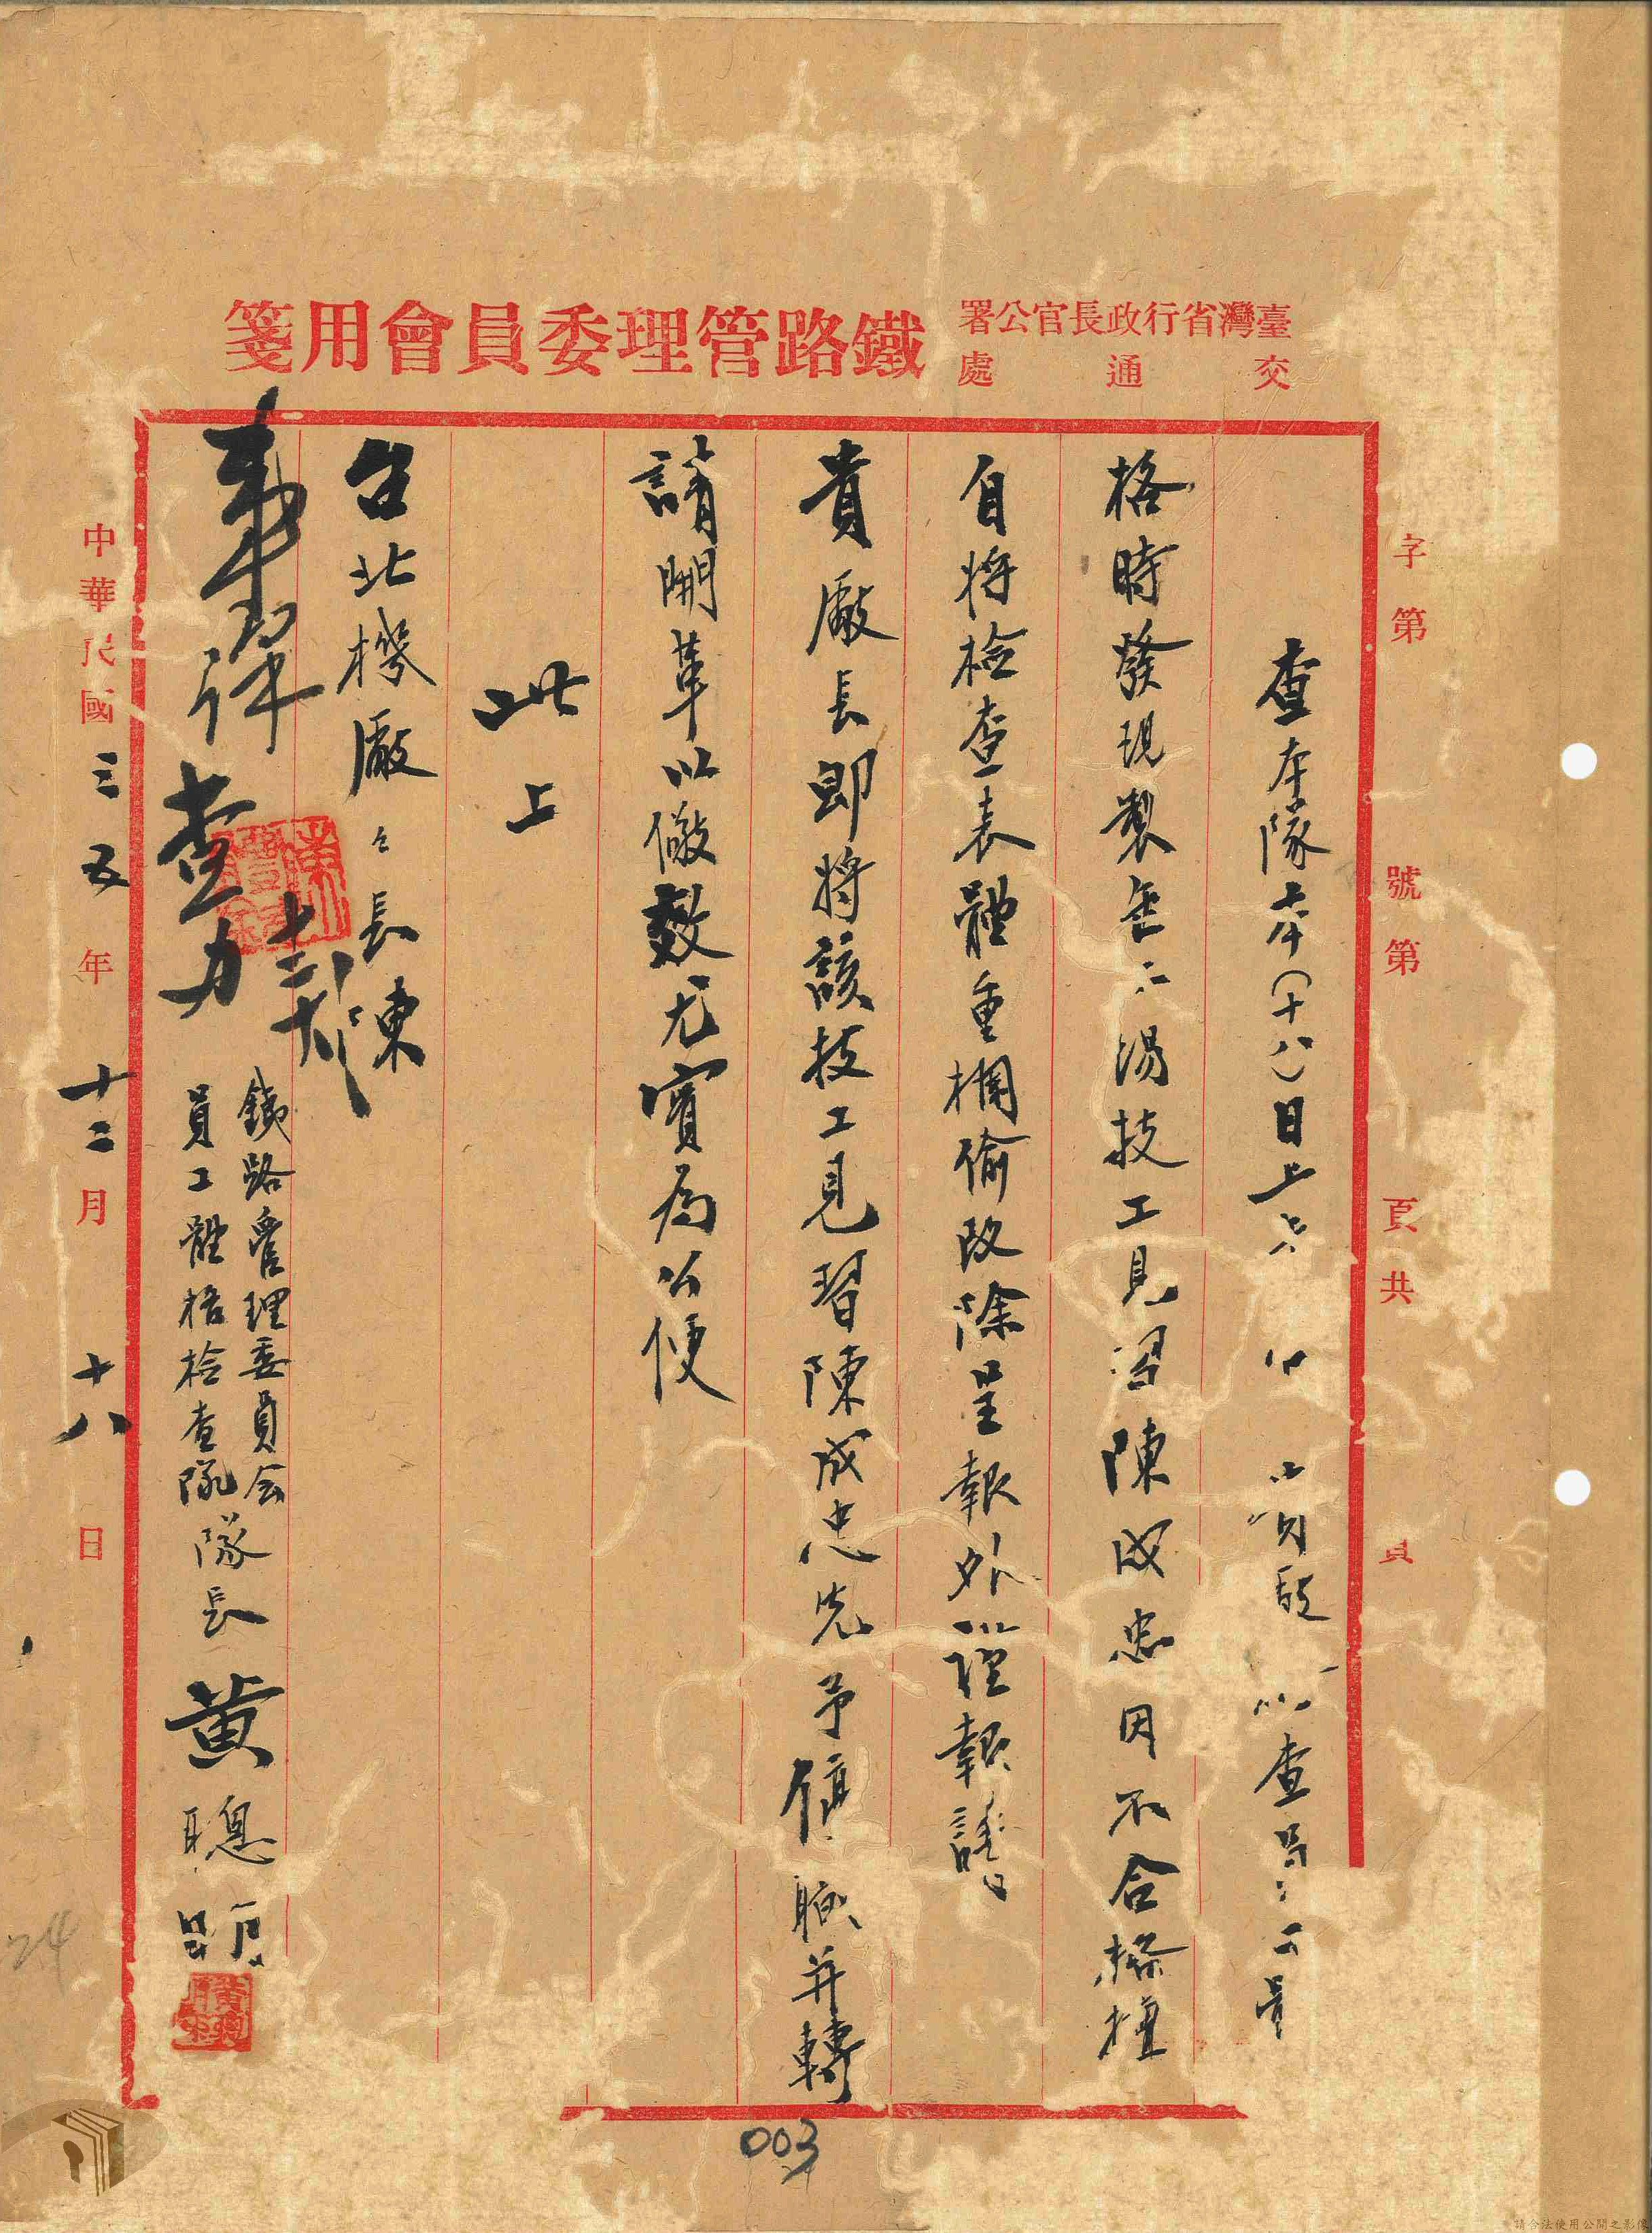 臺灣省行政長官公署
交通處
鐵路管理委員會用箋
字第 號第 頁共 頁
查本隊本(十八)日上 查員工體
格時發現製缶工場技工見習陳成忠因不合格擅
自將檢查表體重欄偷改除呈報外謹報請
貴廠長即將該技工見習陳成忠先予停職并轉
請開革以儆效尤實為公便
此上
台北機廠々長陳
鐵路管理委員会
員工體格檢查隊隊長黃聰
中華民國三五年十二月十八日
003
24
請合法使用公開之影像